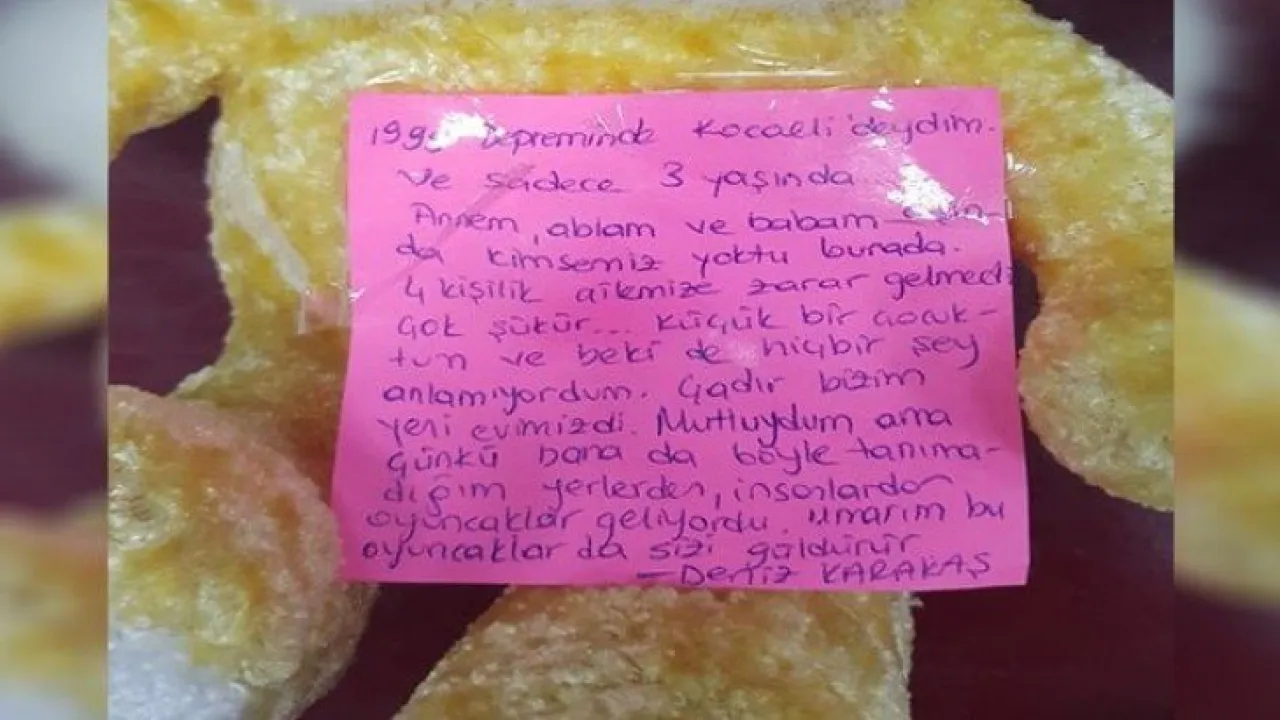 1999 Depreminde Kocaeli'deydim.
Ve sadece 3 yaşında
Annem, ablam ve babam
da kimsemiz yoktu burada.
4 kişilik ailemize zarar gelmedi
Çok şükür... Küçük bir çocuk-
tum ve belki de hiçbir şey
anlamıyordum. Çadır bizim
yeni evimizdi. Mutluydum ama
Çünkü bana da böyle tanıma-
dığım yerlerden, insanlardan
oyuncaklar geliyordu. Umarım bu
oyuncaklar da sizi güldürür
—Deniz KARAKAŞ